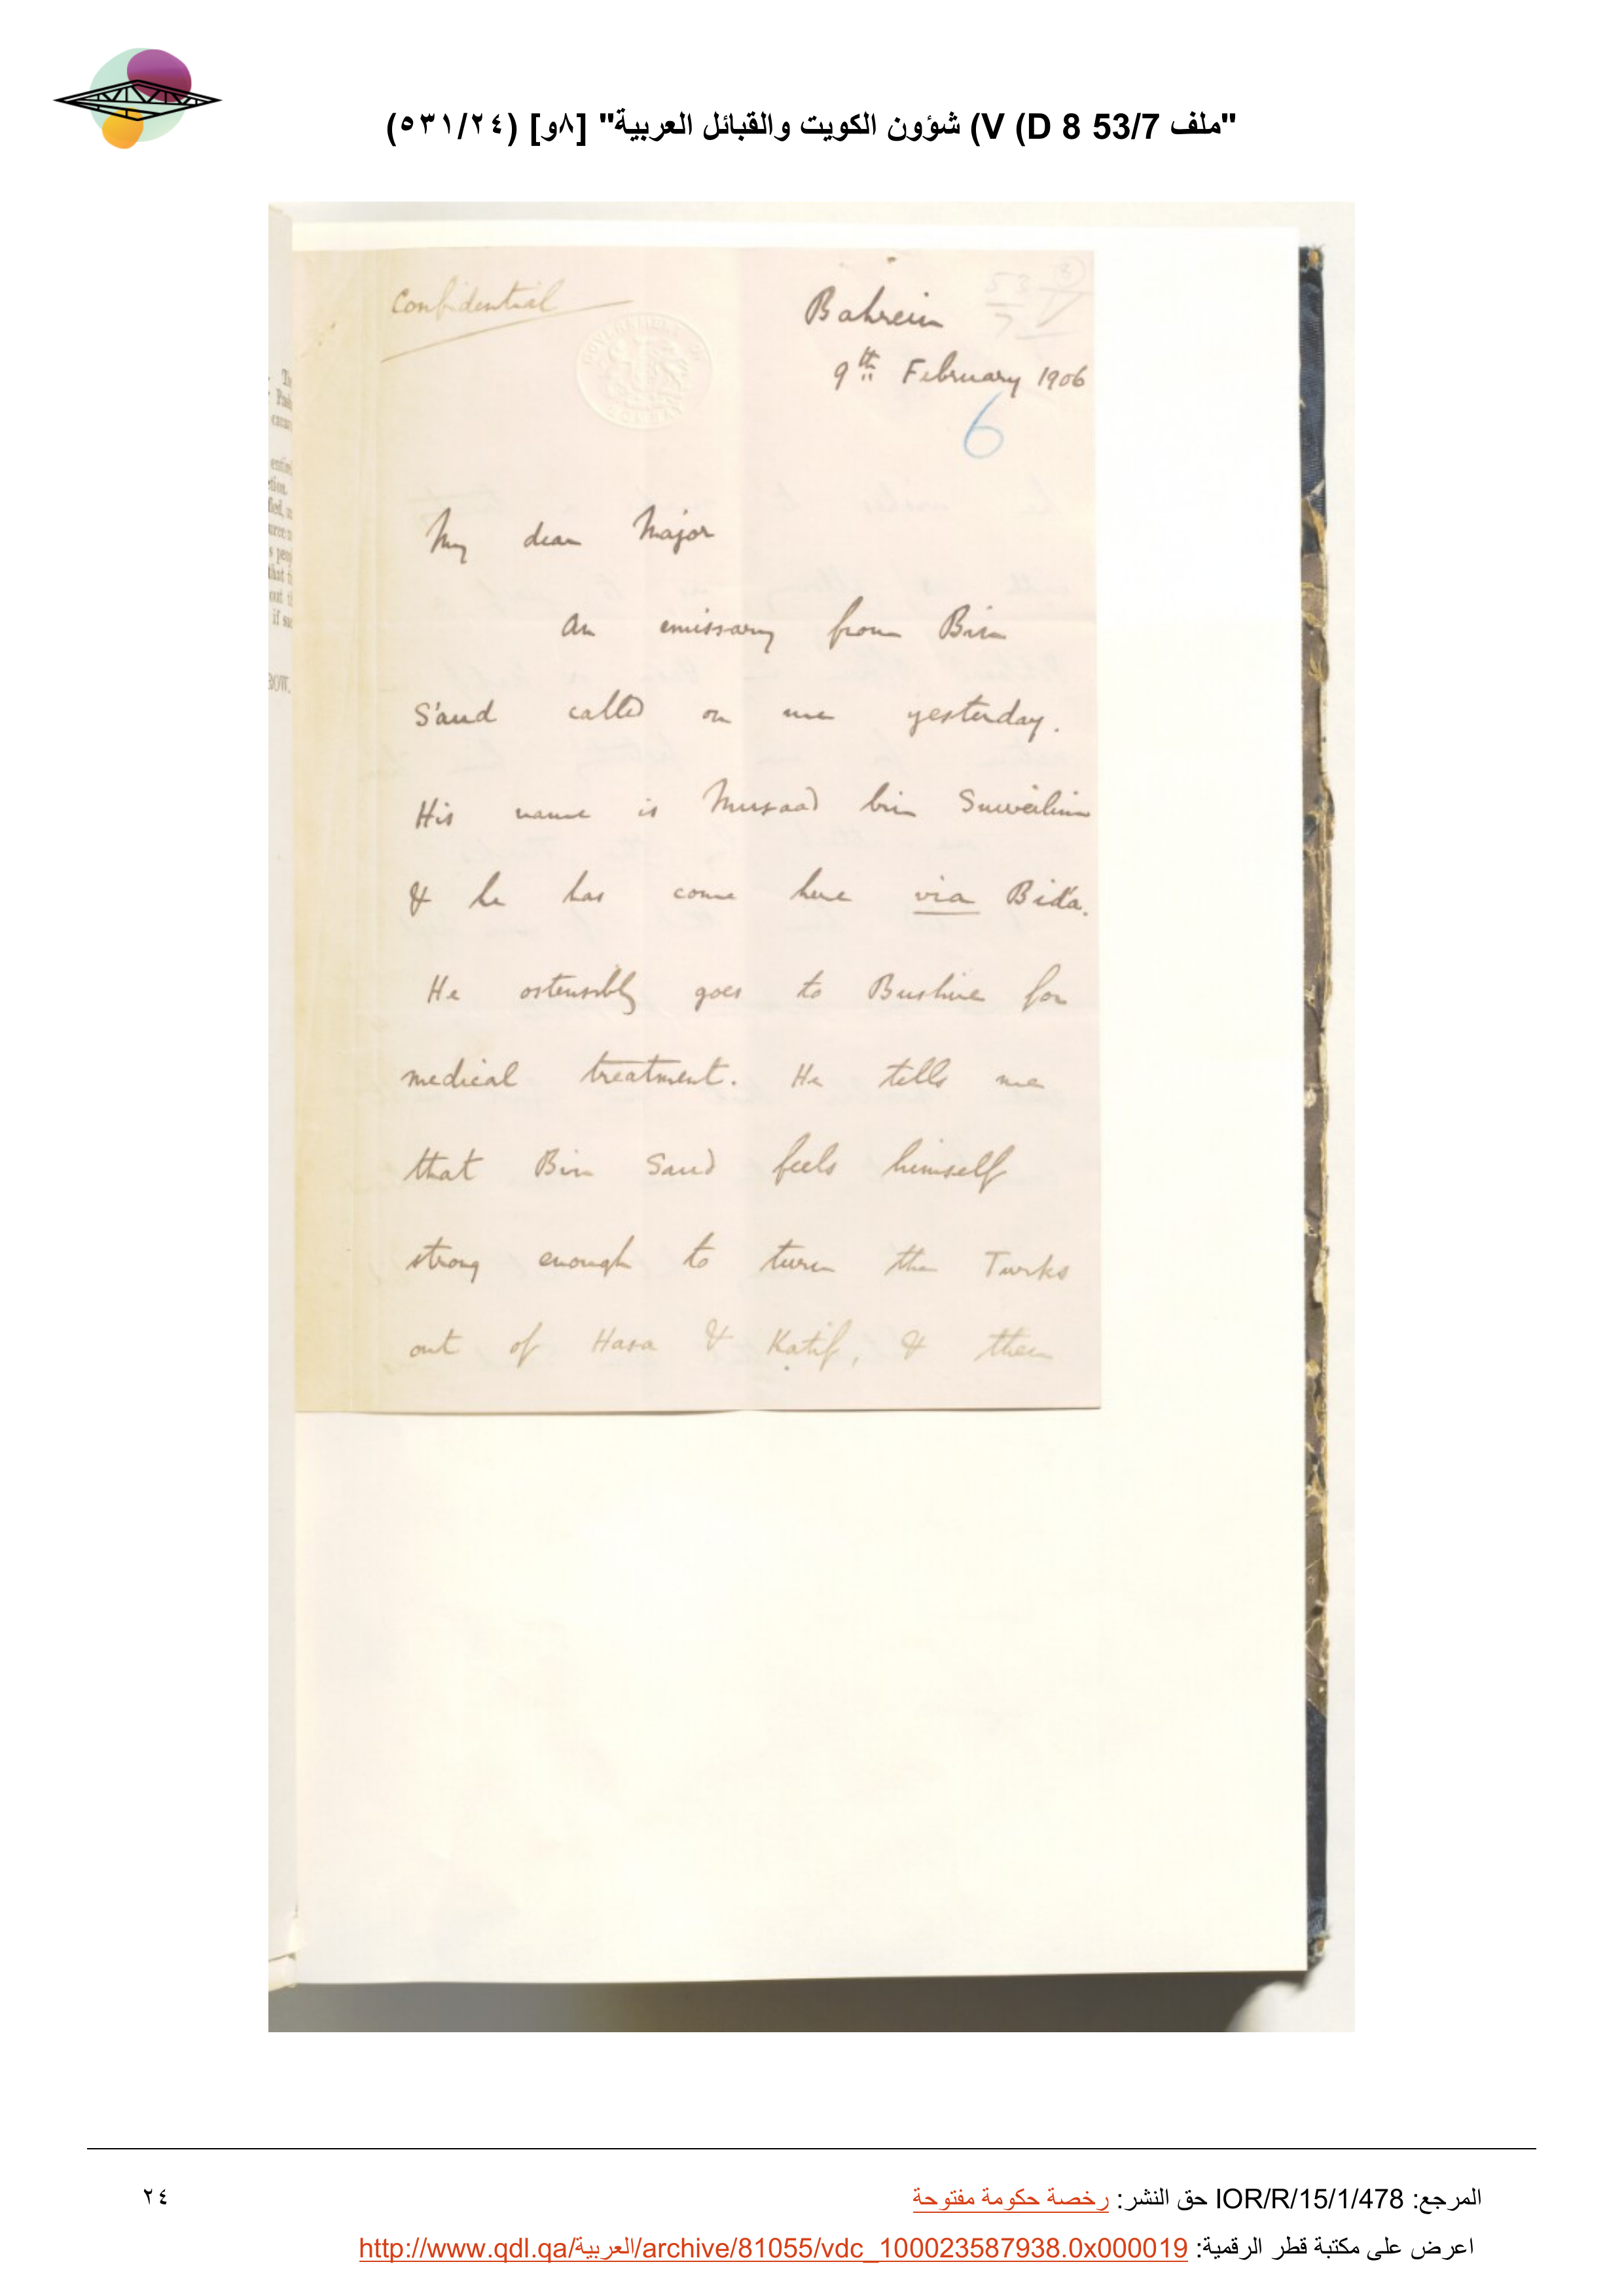 "ملف 53/7 V (D 8) شؤون الكويت والقبائل العربية" [٨و] (٥٣١/٢٤)
Confidential
Bahrein
53
7
9th February 1906
6
My dear Major
An emissary from Bin
S'aud called on me yesterday.
His name is Musaad bin Suweilim
& he has come here via Bid'a.
He ostensibly goes to Bushire for
medical treatment. He tells me
that Bin Saud feels himself
strong enough to turn the Turks
out of Hasa & Katif, & then
المرجع: IOR/R/15/1/478 حق النشر: رخصة حكومة مفتوحة
٢٤
اعرض على مكتبة قطر الرقمية: http://www.qdl.qa/العربية/archive/81055/vdc_100023587938.0x000019